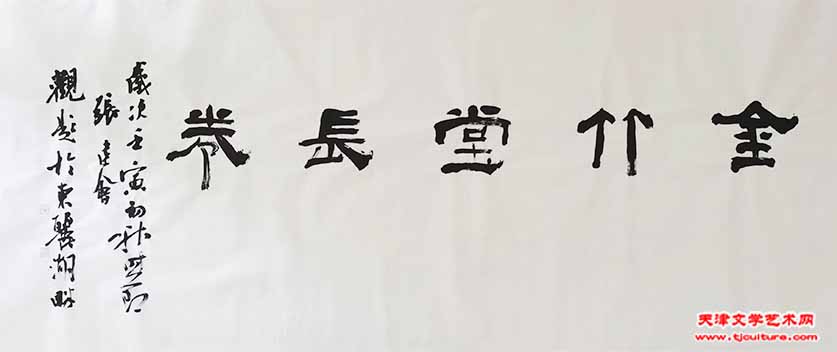 金竹堂長卷
歲次壬寅初秋
張建會
觀題於東麗湖畔
天津文学艺术网
www.tjculture.com